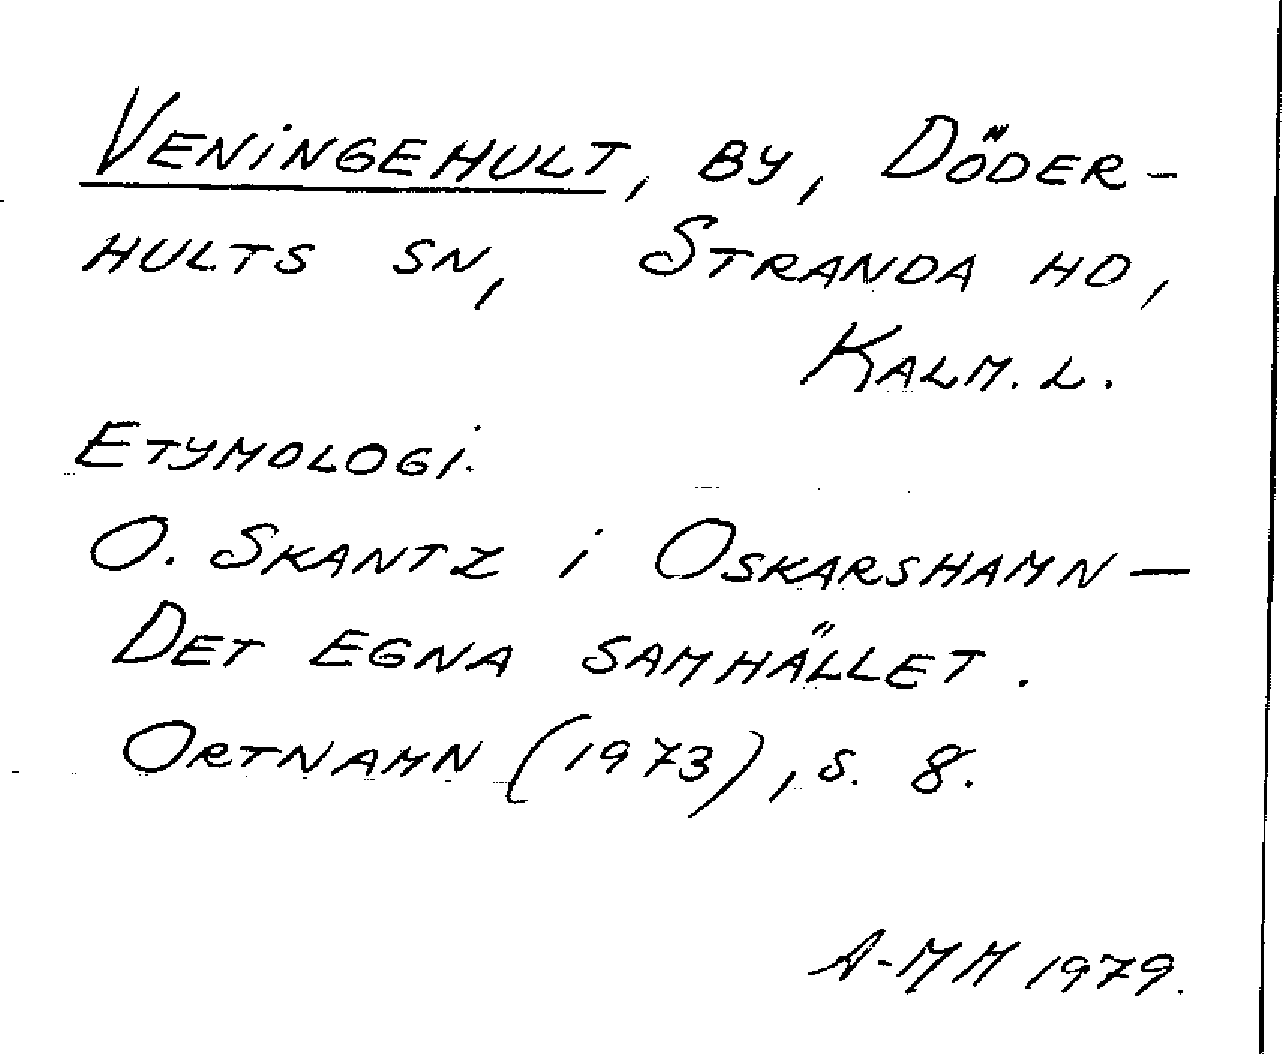 VENINGEHULT, BY, DÖDER-
HULTS SN, STRANDA HD,
KALM. L.
ETYMOLOGI.
O. SKANTZ i OSKARSHAMN —
DET EGNA SAMHÄLLET.
ORTNAMN (1973), S. 8.
A-MM 1979.